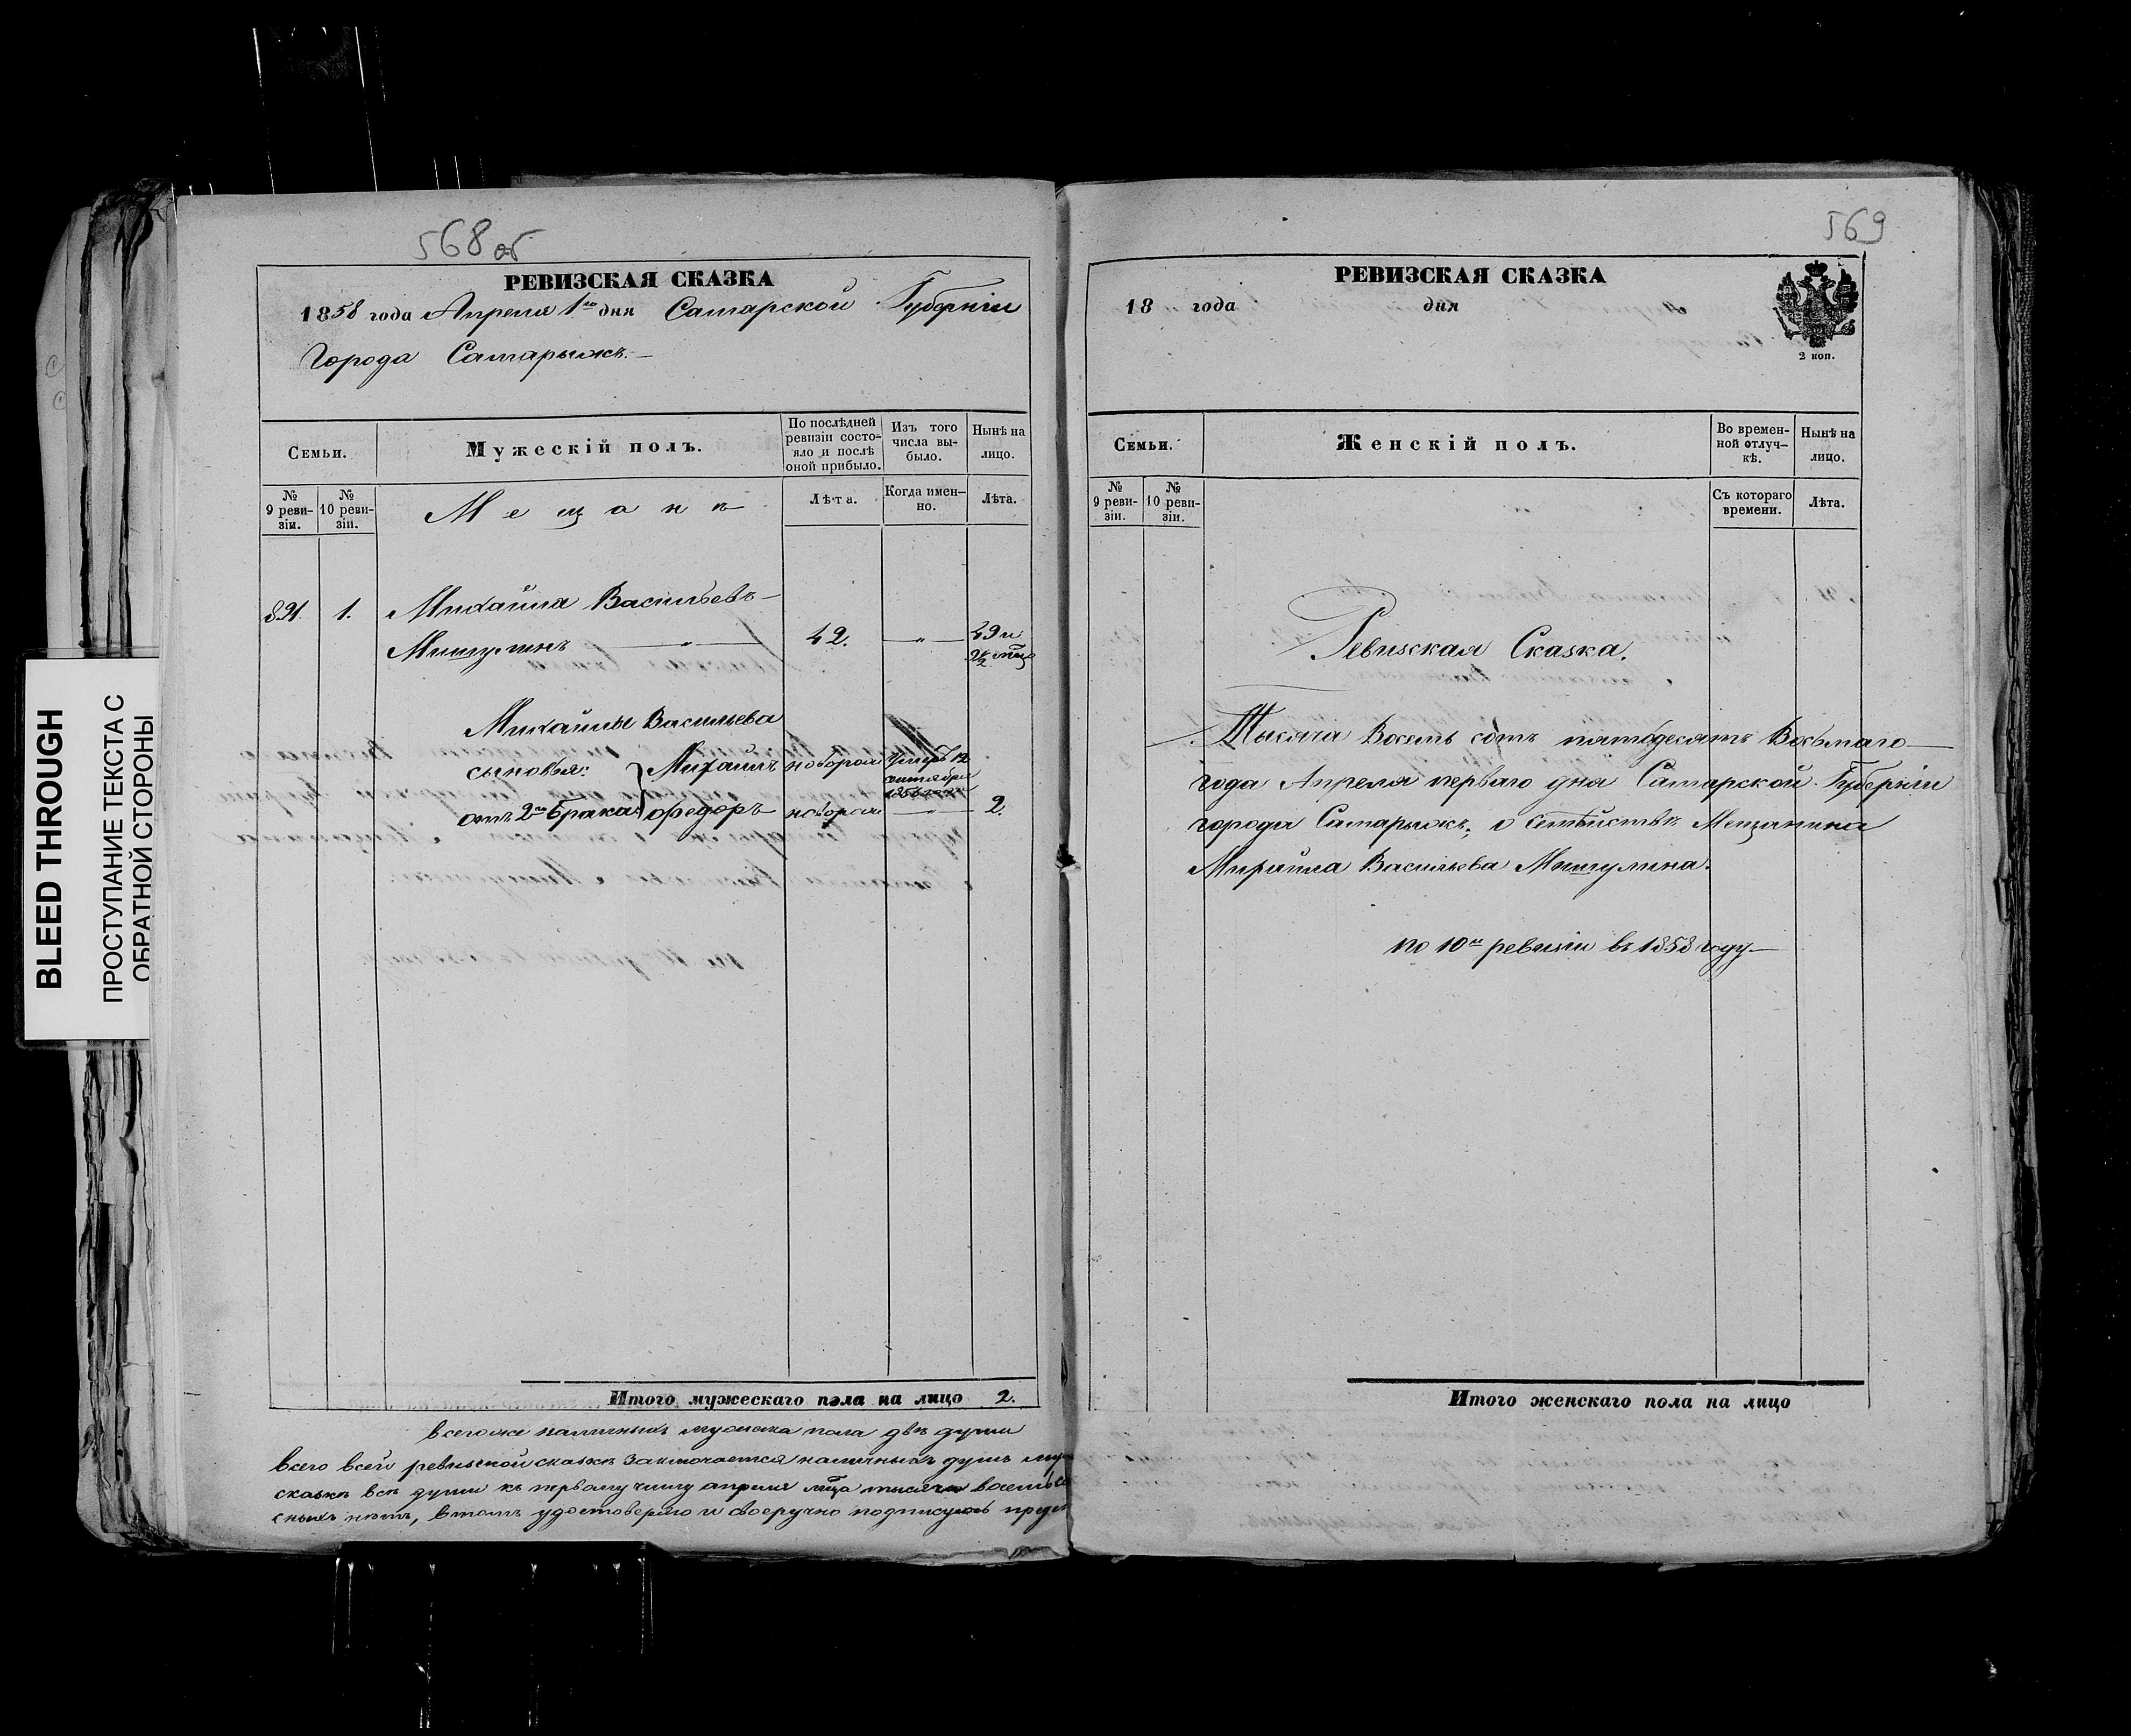 BLEED THROUGH
ПРОСТУПАНИЕ ТЕКСТА С
ОБРАТНОЙ СТОРОНЫ
568 об
РЕВИЗСКАЯ СКАЗКА
1858 года Апреля 1го дня Самарской Губерніи
Города Самары
Семьи.
Мужескій полъ.
По послѣдней ревизіи состояло и послѣ оной прибыло.
Изъ того числа выбыло.
Нынѣ на лицо.
№ 9 ревизіи.
№ 10 ревизіи.
Мещанъ
Лѣта.
Когда именно.
Лѣта.
891. 1. Михайла Васильевъ
Мишулинъ — " — 42. — " — 49 и
Михайлы Васильева
сыновья: Михаилъ новорож Умеръ 12
сентября
1856 года
отъ 2го брака Федоръ новорож — " — 2.
Итого мужескаго пола на лицо 2.
всего же наличныхъ мужска пола двѣ души
всего всей ревизской сказкѣ заключается наличныхъ душъ
сказкѣ всѣ души къ первому числу апреля мца тысяча восемь
нѣтъ, въ томъ удостоверяю и своеручно подписуюсь
569
РЕВИЗСКАЯ СКАЗКА
18 года дня
2 коп.
Семьи.
Женскій полъ.
Во временной отлучкѣ.
Нынѣ на лицо.
№ 9 ревизіи.
№ 10 ревизіи.
Съ котораго времени.
Лѣта.
Ревизская Сказка.
Тысяча Восемь сотъ пятьдесятъ Восьмаго
года Апреля перваго дня Самарской Губерніи
города Самары, о семействѣ Мещанина
Михайла Васильева Мишулина.
по 10й ревизіи въ 1858 году
Итого женскаго пола на лицо